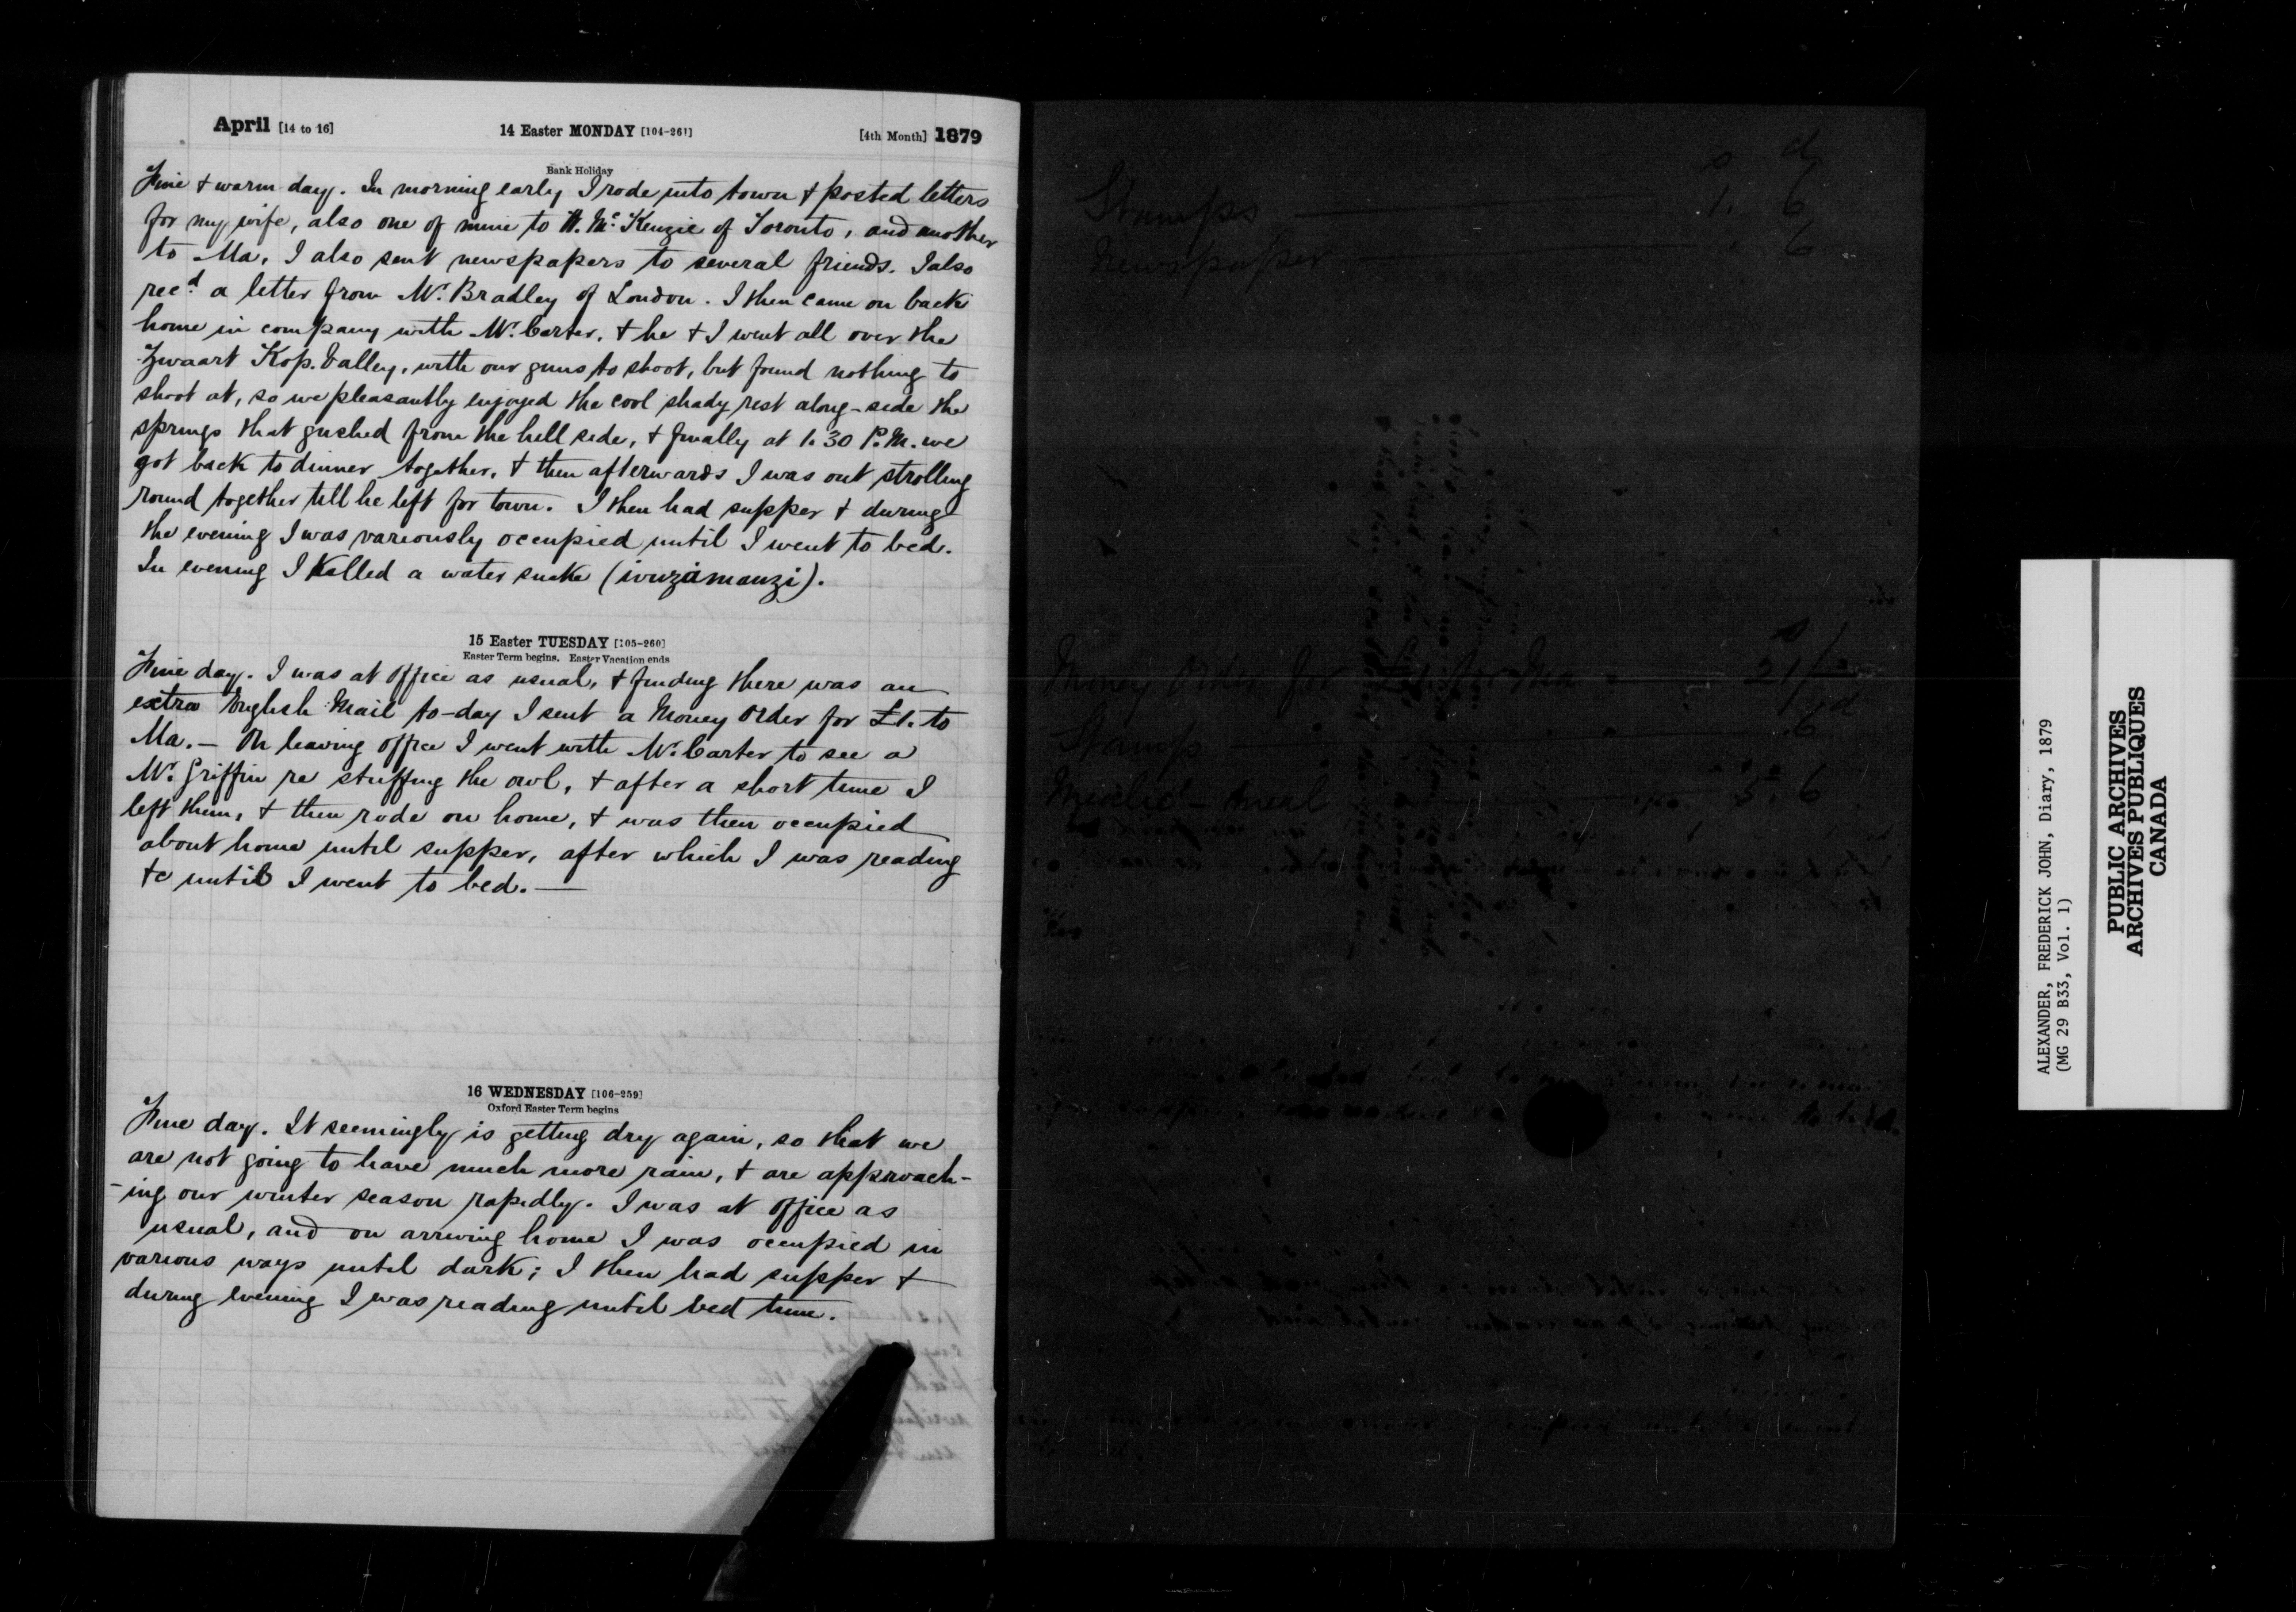 April [14 to 16] 14 Easter MONDAY [104-261] [4th Month] 1879
Bank Holiday
Fine + warm day. In morning early I rode into town + posted letters
for my wife, also one of mine to W. McKenzie of Toronto, and another
to Ma, I also sent newspapers to several friends. I also
recd. a letter from Mr. Bradley of London. I then came on back
home in company with Mr. Carter, + he + I went all over the
Zwaart Kop. Valley, with our guns to shoot, but found nothing to
shoot at, so we pleasantly enjoyed the cool shady rest along-side the
springs that gushed from the hill side, + finally at 1.30 P.M. we
got back to dinner together, + then afterwards I was out strolling
round together till he left for town. I then had supper + during
the evening I was variously occupied until I went to bed.
In evening I killed a water snake (ivuzamanzi).
15 Easter TUESDAY [105-260]
Easter Term begins. Easter Vacation ends
Fine day. I was at office as usual, + finding there was an
extra English Mail to-day I sent a Money Order for £1. to
Ma. — On leaving office I went with Mr. Carter to see a
Mr. Griffin re stuffing the owl, + after a short time I
left them, + then rode on home, + was then occupied
about home until supper, after which I was reading
+c until I went to bed. —
16 WEDNESDAY [106-259]
Oxford Easter Term begins
Fine day. It seemingly is getting dry again, so that we
are not going to have much more rain, + are approach-
-ing our winter season rapidly. I was at office as
usual, and on arriving home I was occupied in
various ways until dark; I then had supper +
during evening I was reading until bed time.
s d
Stamps 1. 6
Newspaper 6
Money Order for £1. for Ma 21/
Stamp 6d
Mealie-meal 5. 6
ALEXANDER, FREDERICK JOHN, Diary, 1879
(MG 29 B33, Vol. 1)
PUBLIC ARCHIVES
ARCHIVES PUBLIQUES
CANADA